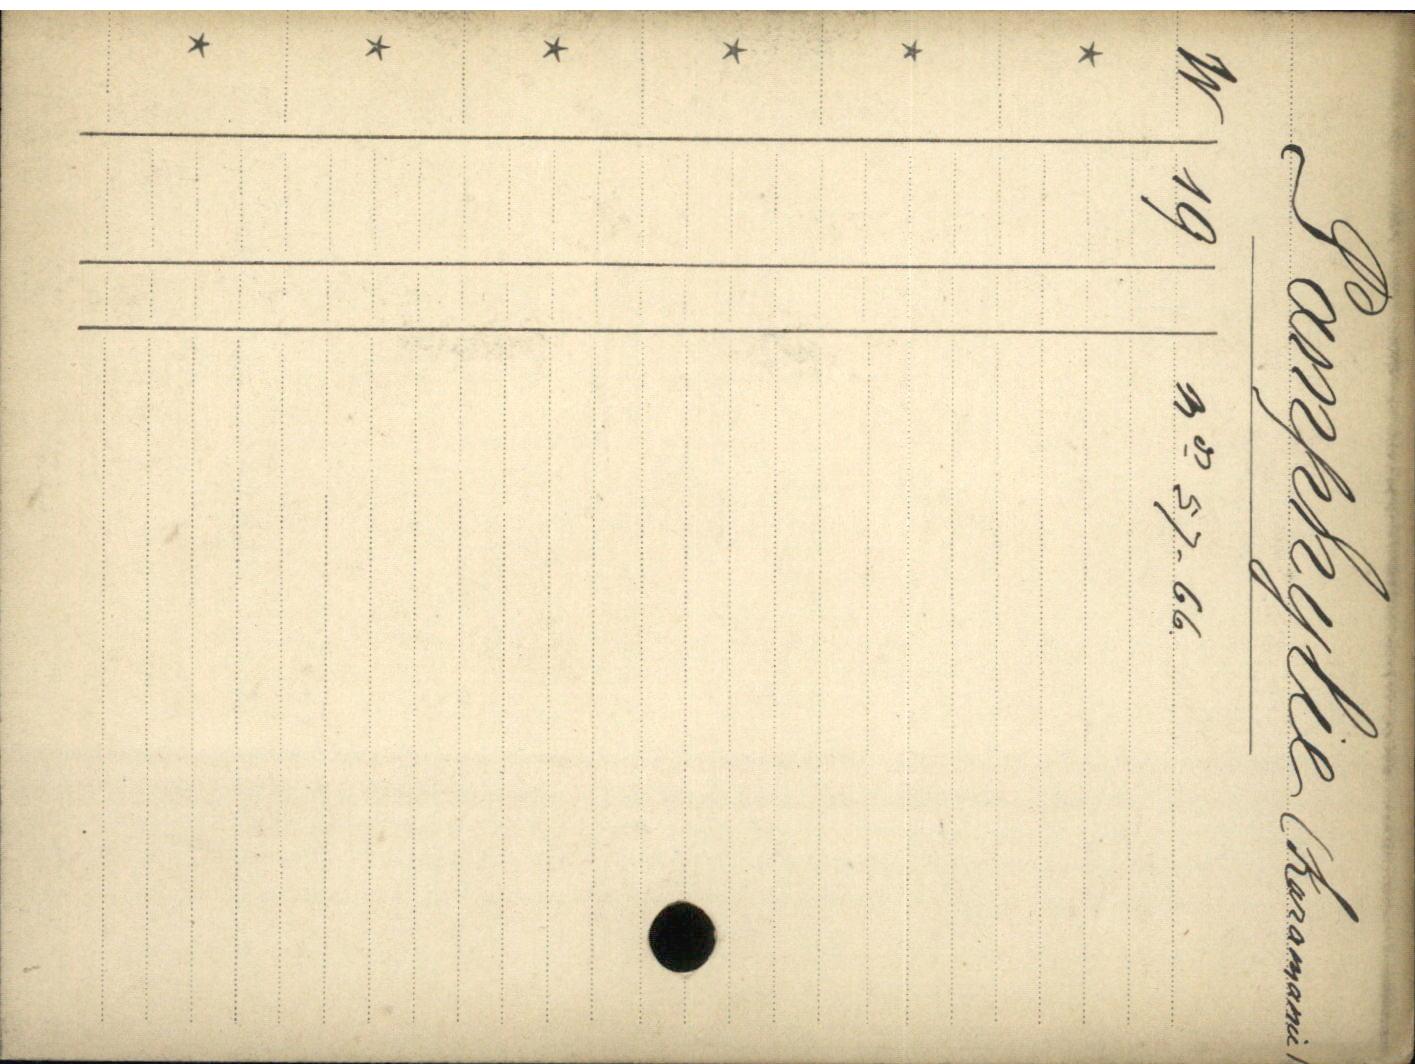 Pamphylie (Karamanie)
W 19 nos 57-66.